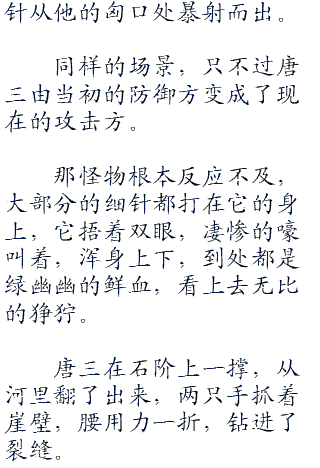 针从他的匈口处暴射而出。
同样的场景，只不过唐
三由当初的防御方变成了现
在的攻击方。
那怪物根本反应不及，
大部分的细针都打在它的身
上，它捂着双眼，凄惨的嚎
叫着，浑身上下，到处都是
绿幽幽的鲜血，看上去无比
的狰狞。
唐三在石阶上一撑，从
河里翻了出来，两只手抓着
崖壁，腰用力一折，钻进了
裂缝。